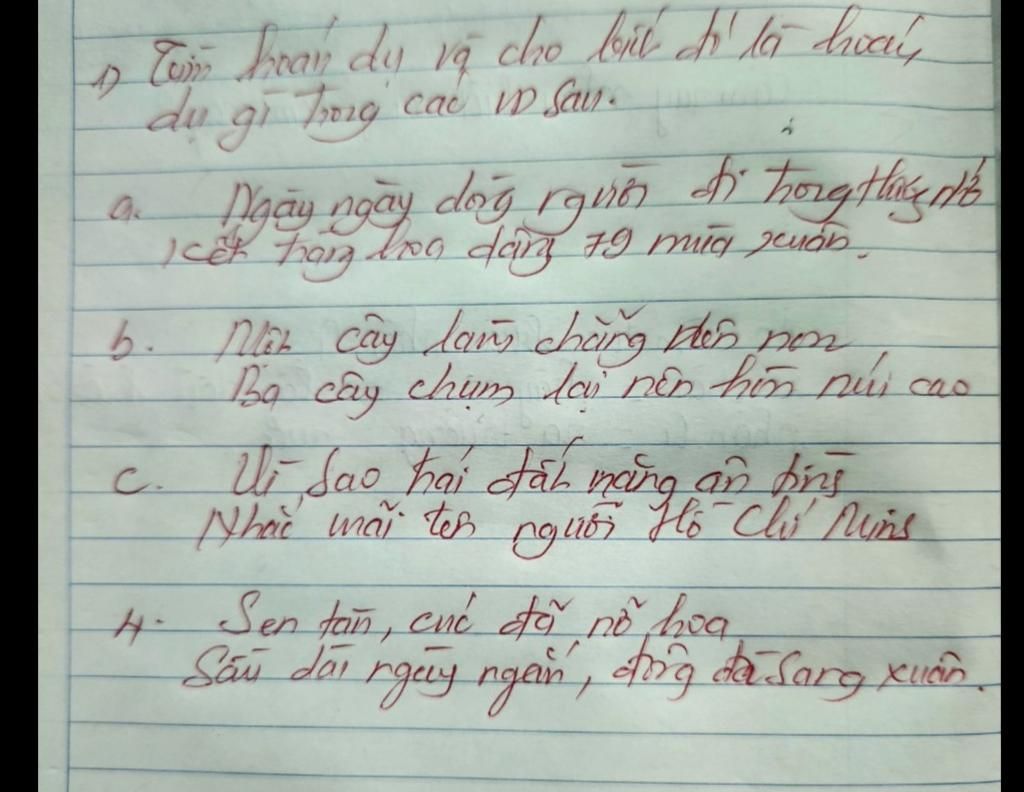 1) Tìm hoán dụ và cho biết đó là hoán
dụ gì trong các VD sau.
a. Ngày ngày dòng người đi trong thương nhớ
kết tràng hoa dâng 79 mùa xuân.
b. Một cây làm chẳng nên non
Ba cây chụm lại nên hòn núi cao
c. Vì sao trái đất nặng ân tình
Nhắc mãi tên người Hồ Chí Minh
4. Sen tàn, cúc đã nở hoa
Sầu dài ngày ngắn, đông đã sang xuân.